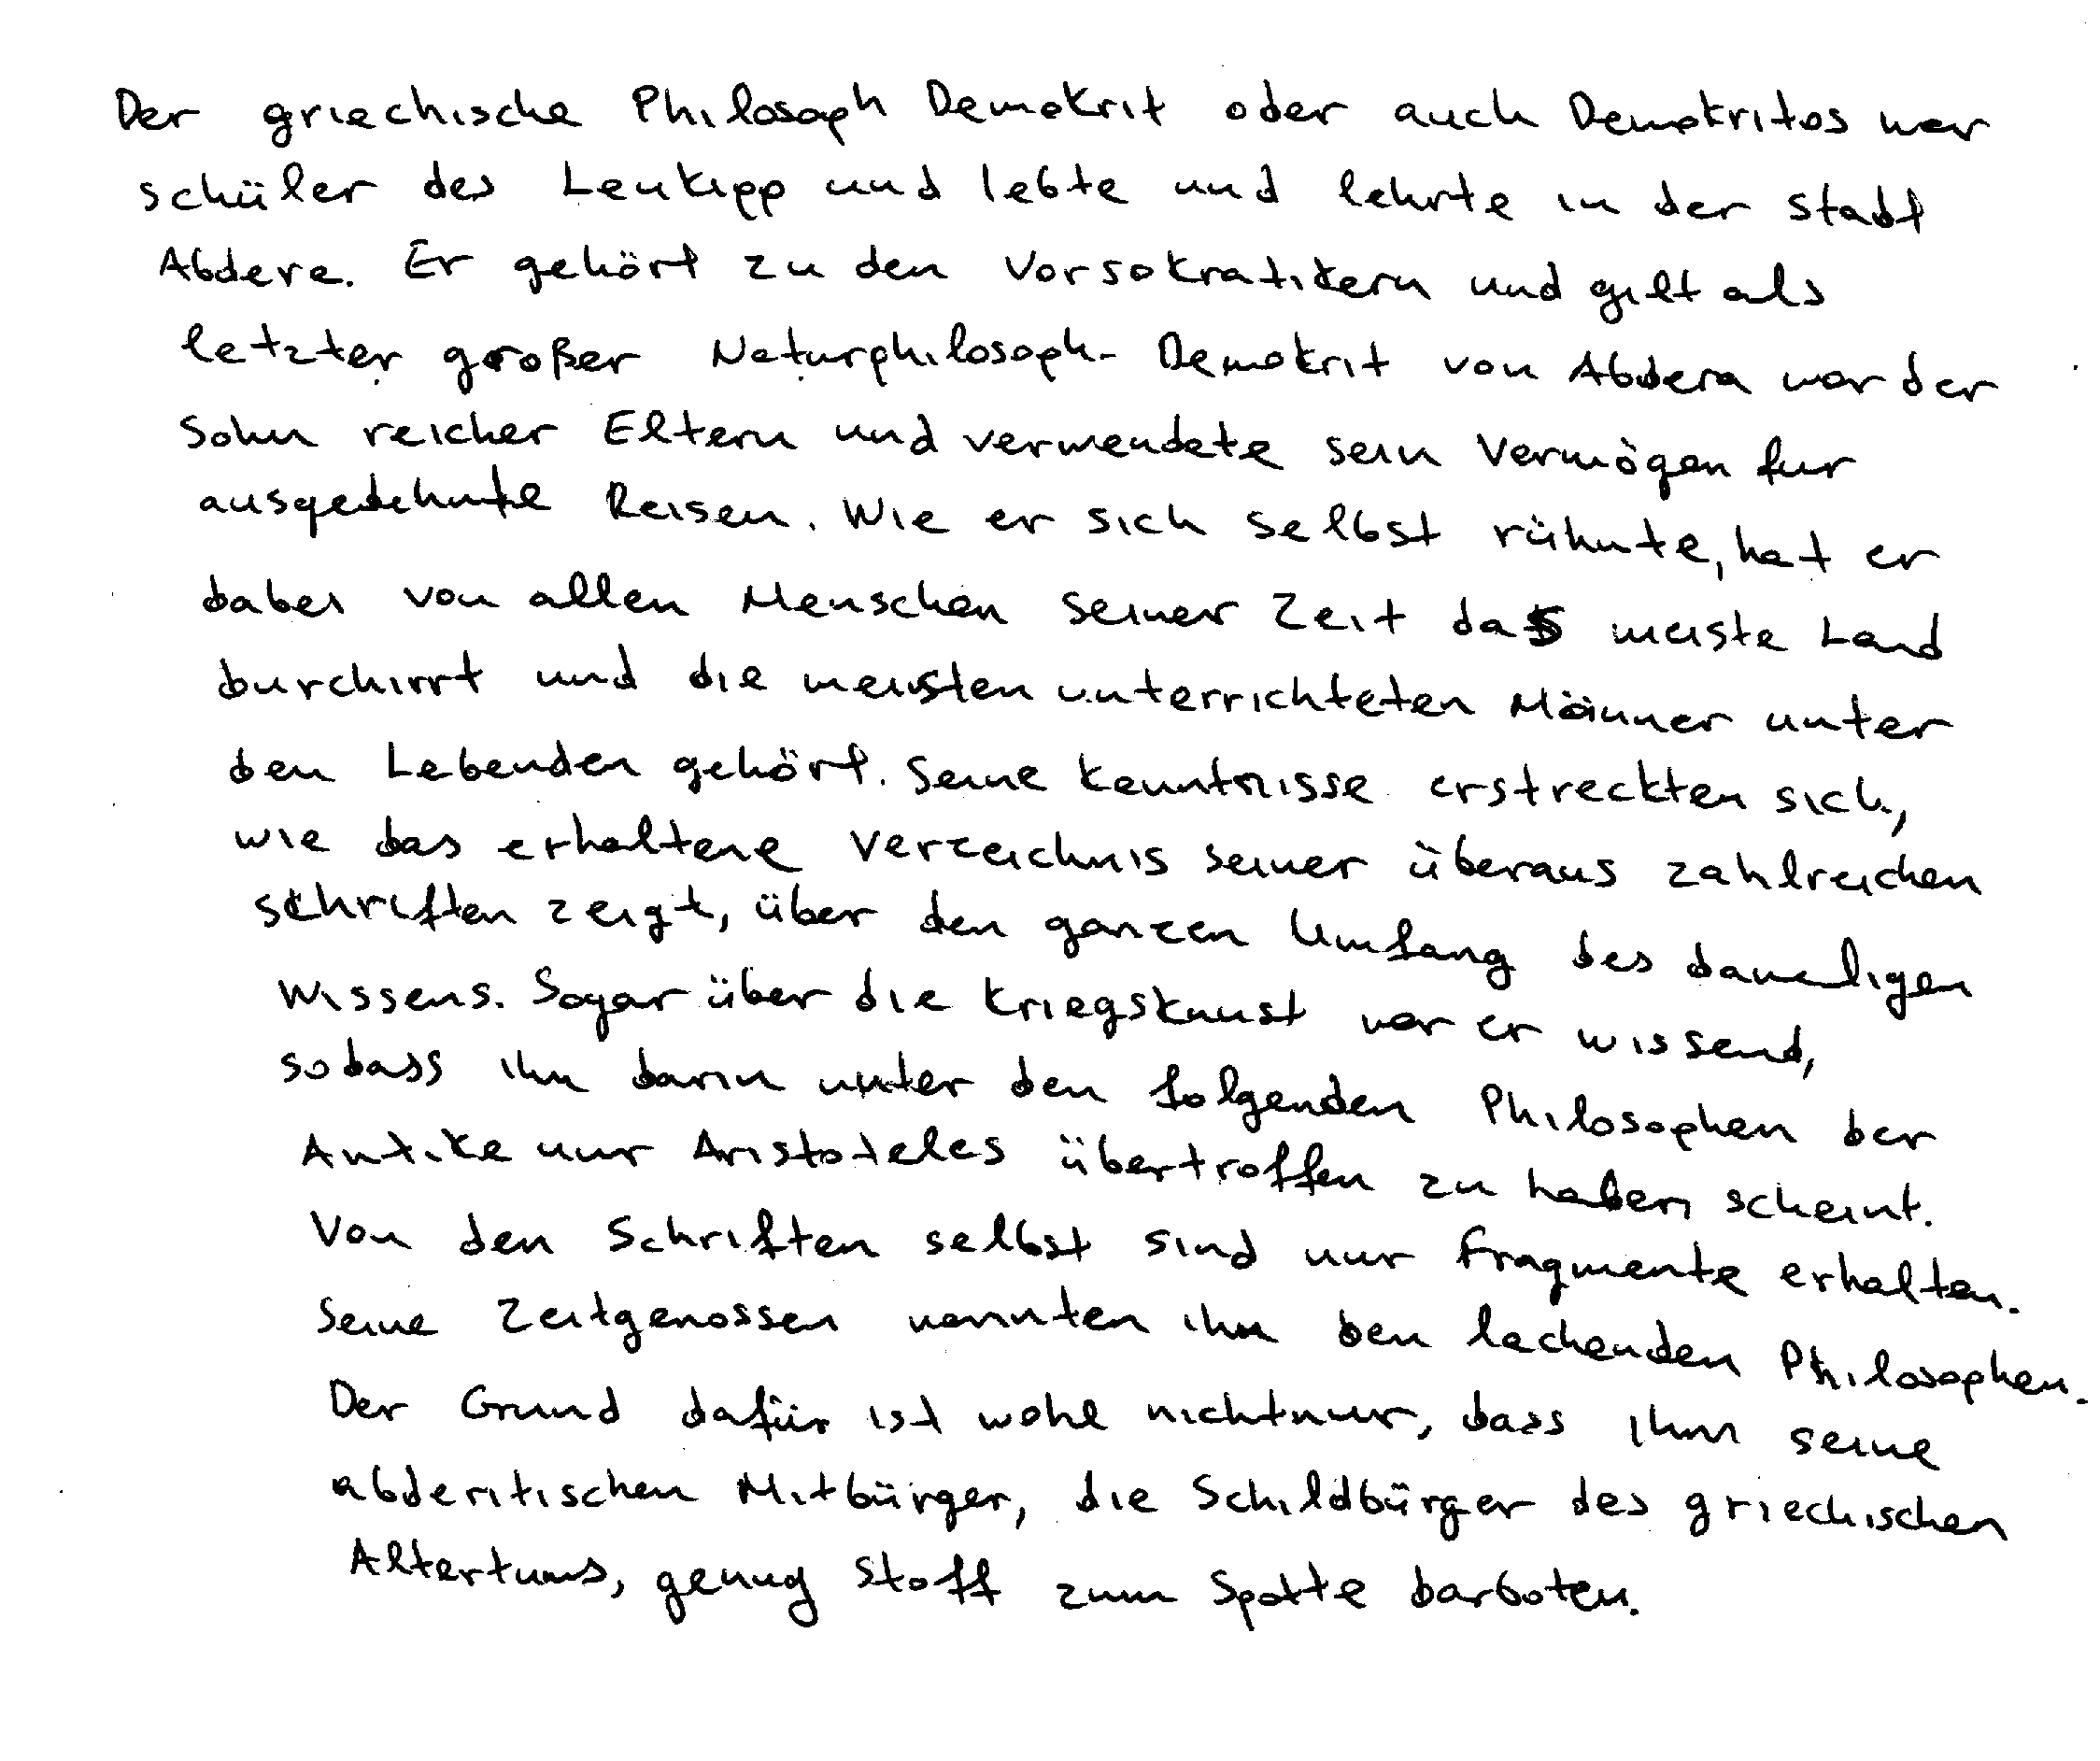 Der griechische Philosoph Demokrit oder auch Demokritos war
Schüler des Leukipp und lebte und lehrte in der Stadt
Abdera. Er gehört zu den Vorsokratikern und gilt als
letzter großer Naturphilosoph. Demokrit von Abdera war der
Sohn reicher Eltern und verwendete sein Vermögen für
ausgedehnte Reisen. Wie er sich selbst rühmte, hat er
dabei von allen Menschen seiner Zeit das meiste Land
durchirrt und die meisten unterrichteten Männer unter
den Lebenden gehört. Seine Kenntnisse erstreckten sich,
wie das erhaltene Verzeichnis seiner überaus zahlreichen
Schriften zeigt, über den ganzen Umfang des damaligen
Wissens. Sogar über die Kriegskunst war er wissend,
sodass ihn darin unter den folgenden Philosophen der
Antike nur Aristoteles übertroffen zu haben scheint.
Von den Schriften selbst sind nur Fragmente erhalten.
Seine Zeitgenossen nannten ihn den lachenden Philosophen.
Der Grund dafür ist wohl nicht nur, dass ihm seine
abderitischen Mitbürger, die Schildbürger des griechischen
Altertums, genug Stoff zum Spotte darboten.